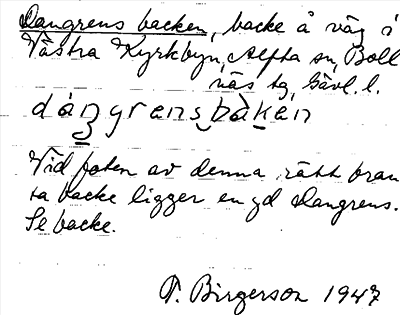 Dangrens backen, backe å väg i
Västra Kyrkbyn, Alfta sn, Boll
näs tg, Gävl. l.
dáŋgrens bàken
Vid foten av denna rätt bran
ta backe ligger en gd Dangrens.
Se backe.
T. Birgerson 1947